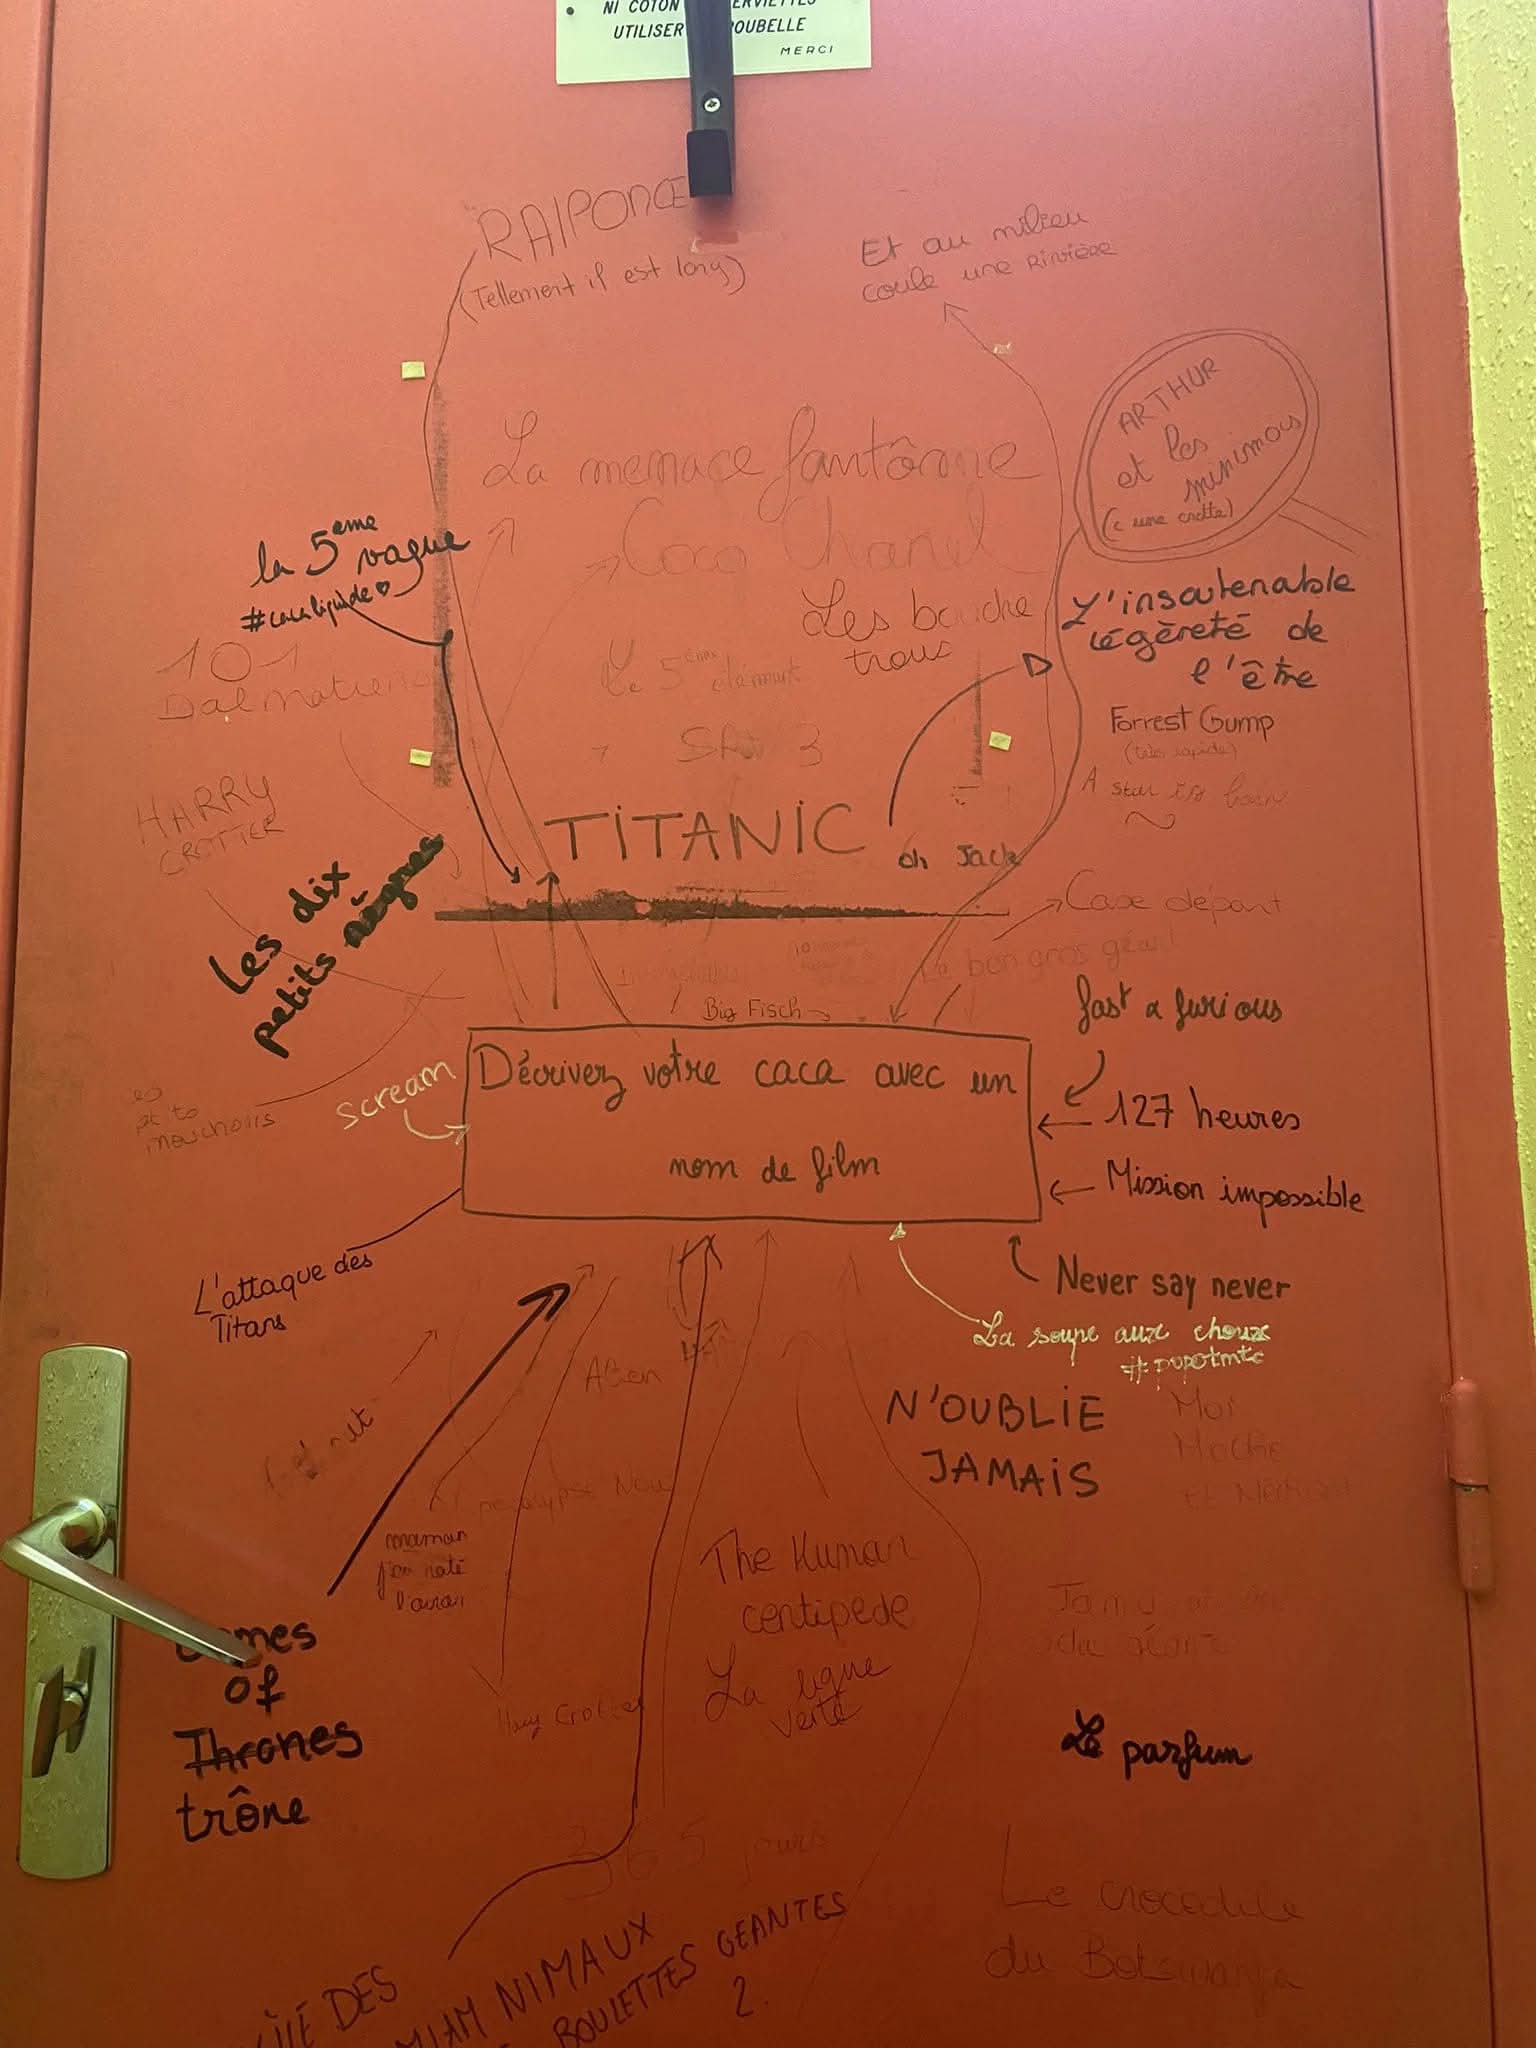 NI COTON
UTILISER
MERCI
RAIPONCE
(Tellement il est long)
Et au milieu
coule une rivière
ARTHUR
et les
minimoys
(c une crotte)
La menace fantôme
Coco Chanel
la 5eme
vague
#cacaliquide♡
Les bouche
trous
L'insoutenable
légèreté de
l'être
101
Dalmatiens
Le 5eme élément
Forrest Gump
(très rapide)
A star is born
3
HARRY
CROTTER
TiTANiC
oh Jack
Les dix
petits
Case départ
Le bon gros géant
Big Fisch
fast & furious
Scream
Décrivez votre caca avec un
nom de film
127 heures
Mission impossible
petits
mouchoirs
L'attaque des
Titans
Never say never
La soupe aux choux
Alien
N'OUBLiE
JAMAiS
Moi
Moche
et Méchant
maman
j'ai raté
l'avion
The Human
centipede
La ligne
verte
of
Thrones
trône
Harry Crotter
Le parfum
365 jours
Le crocodile
du Botswanga
DES
MIAM NIMAUX
BOULETTES GEANTES
2.